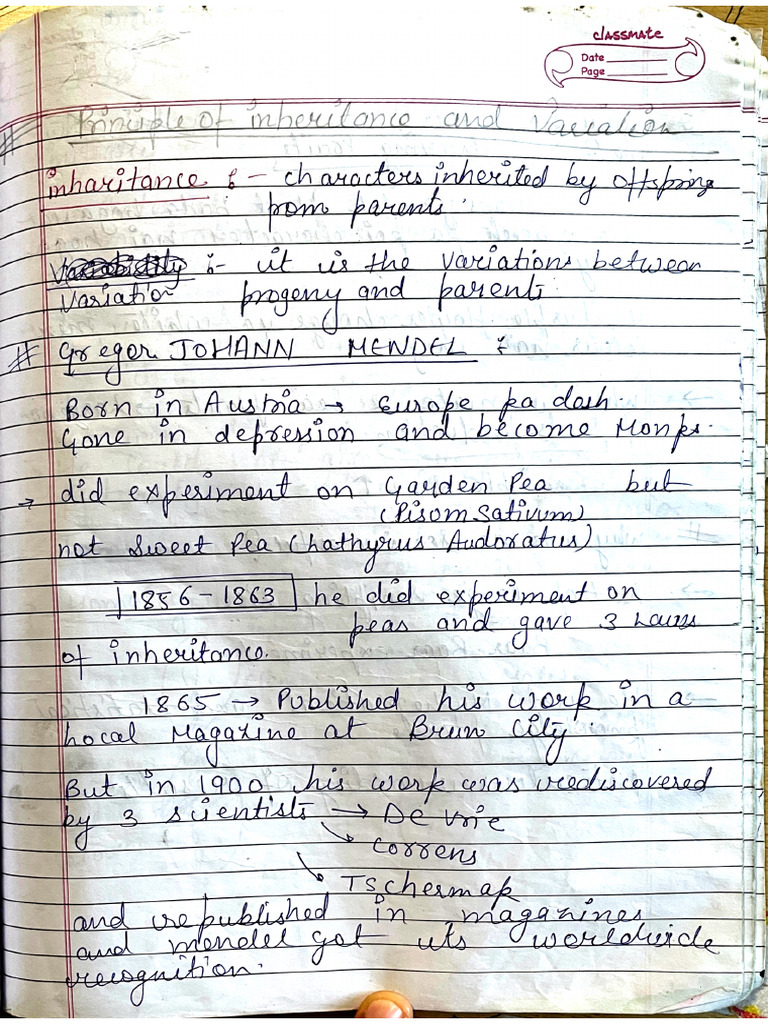 classmate
Date
Page
# Principle of inheritance and Variation
inharitance :- characters inherited by offspring
from parents.
:- it is the variations between
variation progeny and parents
# Gregor JOHANN MENDEL :
Born in Austria → Europe ka desh.
Gone in depression and become Monk.
→ did experiment on Garden Pea but
(Pisom Sativum)
not Sweet Pea (Lathyrus Audoratus)
1856-1863 he did experiment on
peas and gave 3 Laws
of inheritance.
1865 → Published his work in a
Local Magazine at Brun City.
But in 1900 his work was rediscovered
by 3 scientists → De vrie
→ correns
→ Tschermak
and republished in magazines
and mendel got its worldwide
recognition.